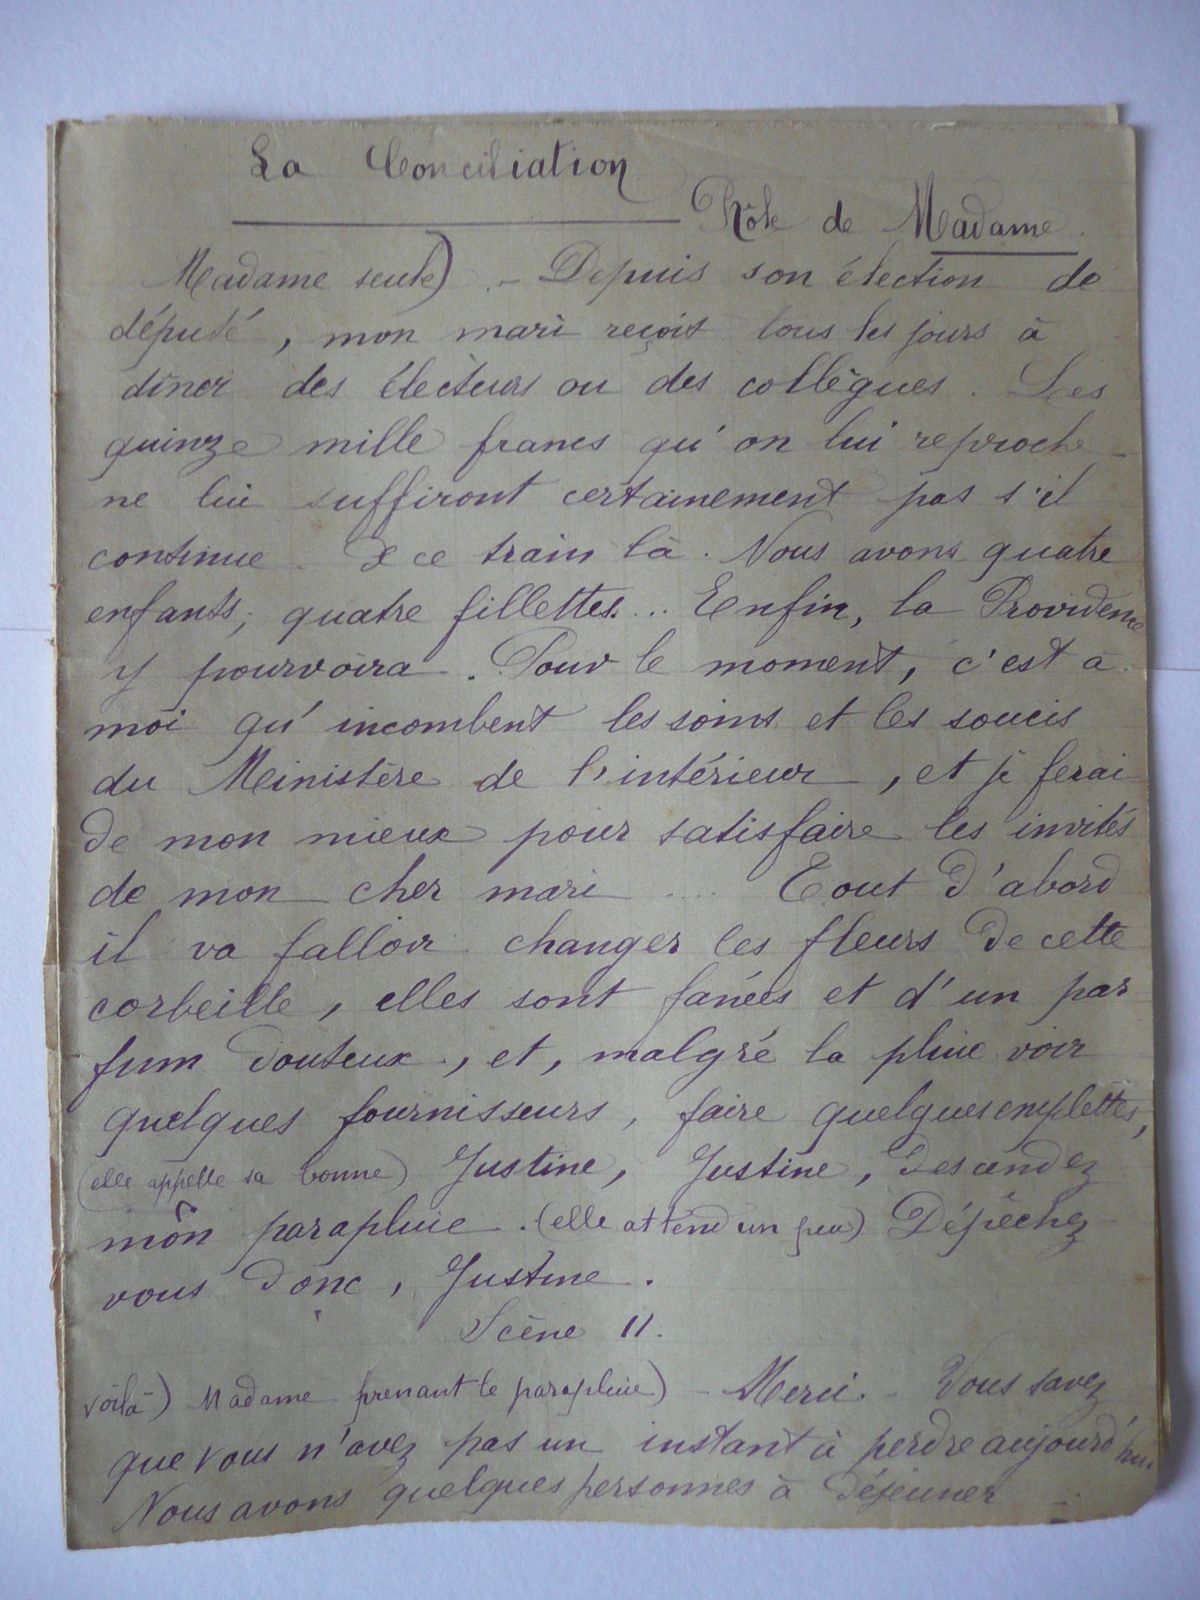 La Conciliation
Rôle de Madame.
Madame seule) . – Depuis son élection de
député, mon mari reçoit tous les jours à
dîner des électeurs ou des collègues. Les
quinze mille francs qu'on lui reproche
ne lui suffiront certainement pas s'il
continue ce train là. Nous avons quatre
enfants, quatre fillettes... Enfin, la Providence
y pourvoira. Pour le moment, c'est à
moi qu'incombent les soins et les soucis
du Ministère de l'intérieur, et je ferai
de mon mieux pour satisfaire les invités
de mon cher mari ... Tout d'abord
il va falloir changer les fleurs de cette
corbeille, elles sont fanées et d'un par
fum douteux, et, malgré la pluie voir
quelques fournisseurs, faire quelques emplettes,
(elle appelle sa bonne) Justine, Justine, descendez
mon parapluie. (elle attend un peu) Dépêchez
vous donc, Justine.
Scène II.
voilà) Madame prenant le parapluie) – Merci. – Vous savez
que vous n'avez pas un instant à perdre aujourd'hui
Nous avons quelques personnes à déjeuner –